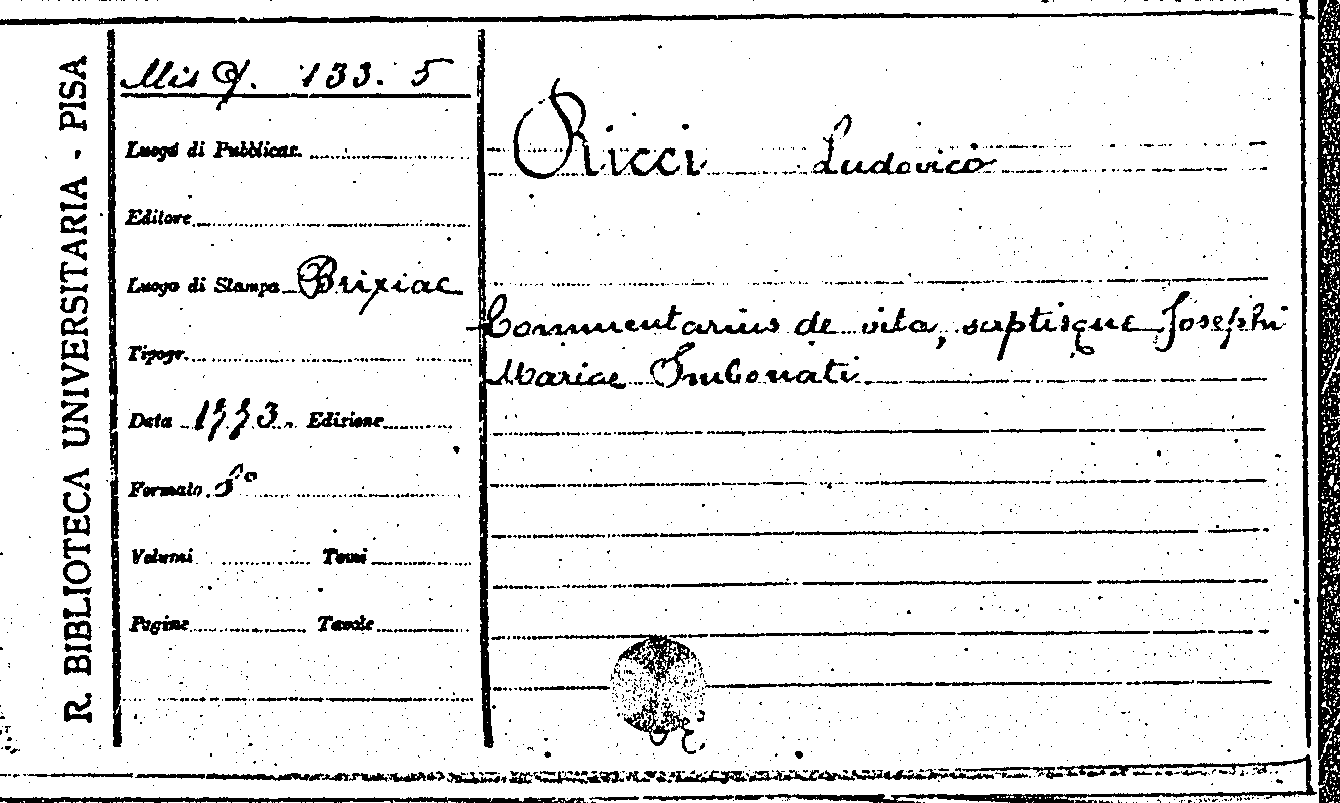 R. BIBLIOTECA UNIVERSITARIA - PISA
Mis. 133. 5
Luogo di Pubblicaz.
Editore
Luogo di Stampa Brixiae
Tipogr.
Data 1773. Edizione
Formato 8°
Volumi Tomi
Pagine Tavole
Ricci Ludovico
Commentarius de vita, scriptisque Josephi
Mariae Imbonati